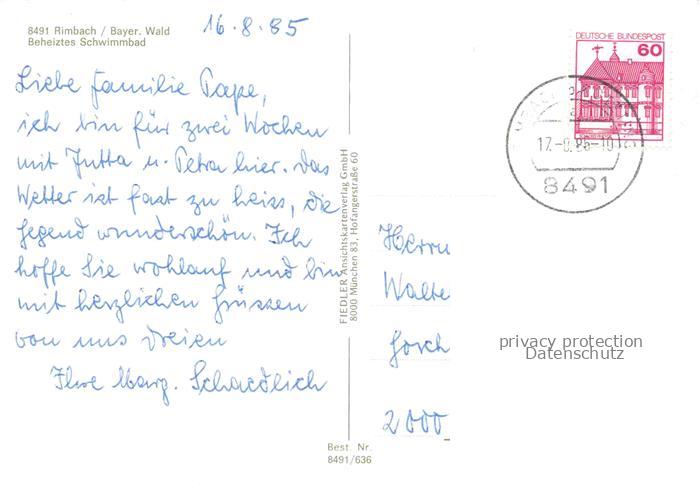 8491 Rimbach / Bayer. Wald
Beheiztes Schwimmbad
16.8.85
Liebe Familie Pape,
ich bin für zwei Wochen
mit Jutta u. Petra hier. Das
Wetter ist fast zu heiss, die
Gegend wunderschön. Ich
hoffe Sie wohlauf und bin
mit herzlichen Grüssen
von uns dreien
Ihre Marg. Schaedlich
FIEDLER Ansichtskartenverlag GmbH
8000 München 83, Hofangerstraße 60
Best. Nr.
8491/636
DEUTSCHE BUNDESPOST
60
17.-8.85-10
8491
Herrn
Walte
Gorch
2000
privacy protection
Datenschutz